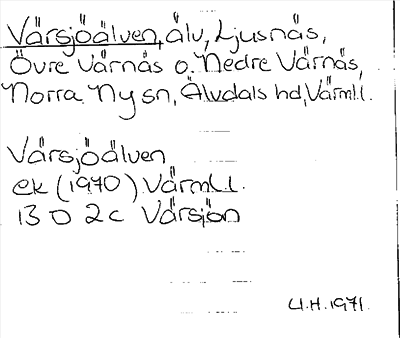 Värsjöälven, älv, Ljusnäs,
Övre Värnäs o. Nedre Värnäs,
Norra Ny sn, Älvdals hd, Värml.
Värsjöälven
ek (1970) Värml.
13 D 2c Värsjön
U.H. 1971.